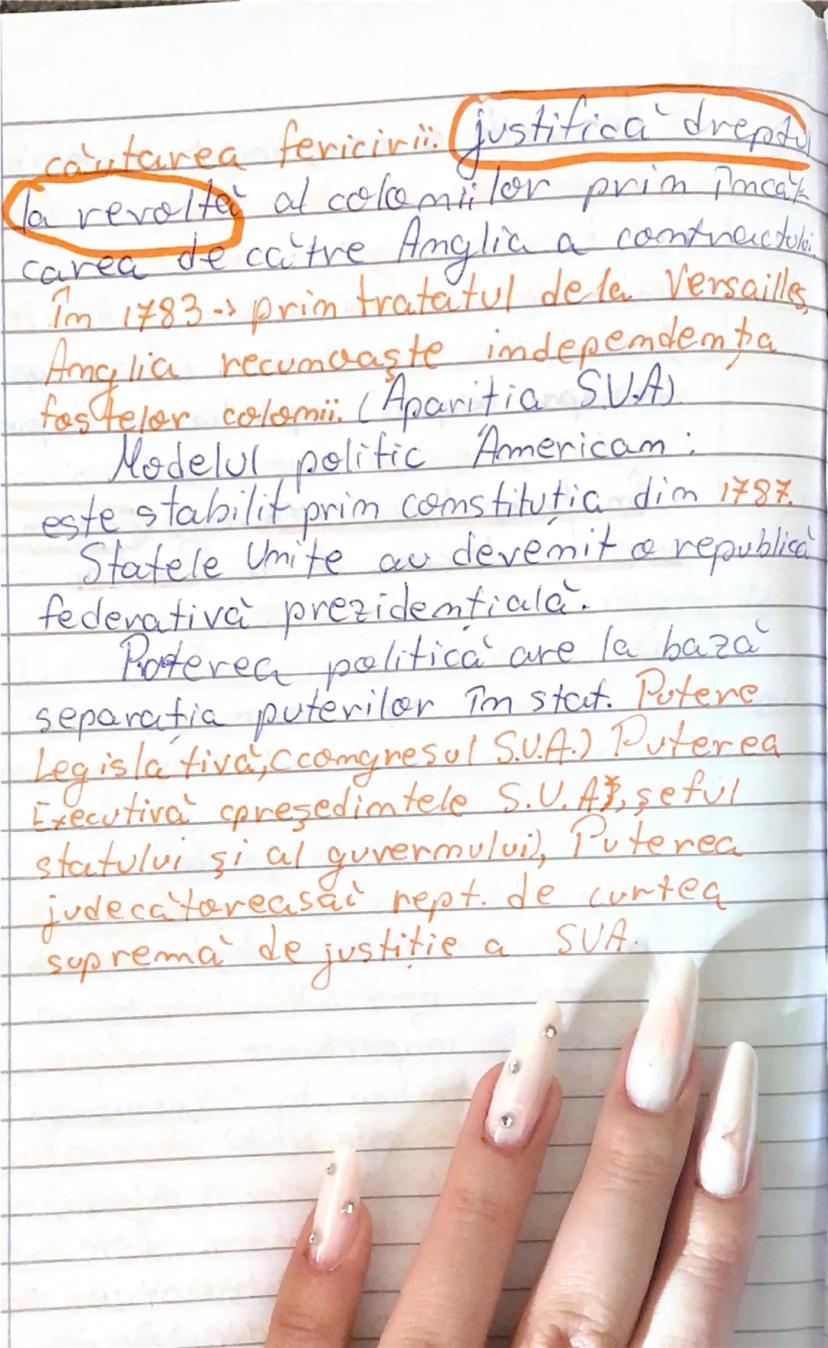 căutarea fericirii. justifică dreptu
la revoltă al coloniilor prin încăl-
carea de către Anglia a contractului.
În 1783 -> prin tratatul de la Versailles,
Anglia recunoaște independența
fostelor colonii. (Apariția S.U.A)
Modelul politic American:
este stabilit prin constituția din 1787.
Statele Unite au devenit o republică
federativă prezidențială.
Puterea politică are la bază
separația puterilor în stat. Putere
Legislativă, (congresul S.U.A.) Puterea
Executivă (președintele S.U.A, șeful
statului și al guvernului), Puterea
judecătorească rept. de curtea
supremă de justiție a SUA.